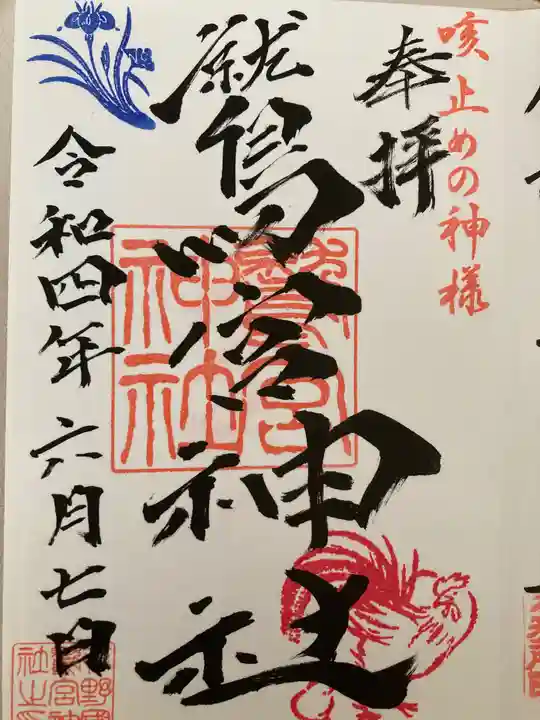 咳止めの神様
奉拝
鷲宮神社
鷲宮
神社
令和四年六月七日